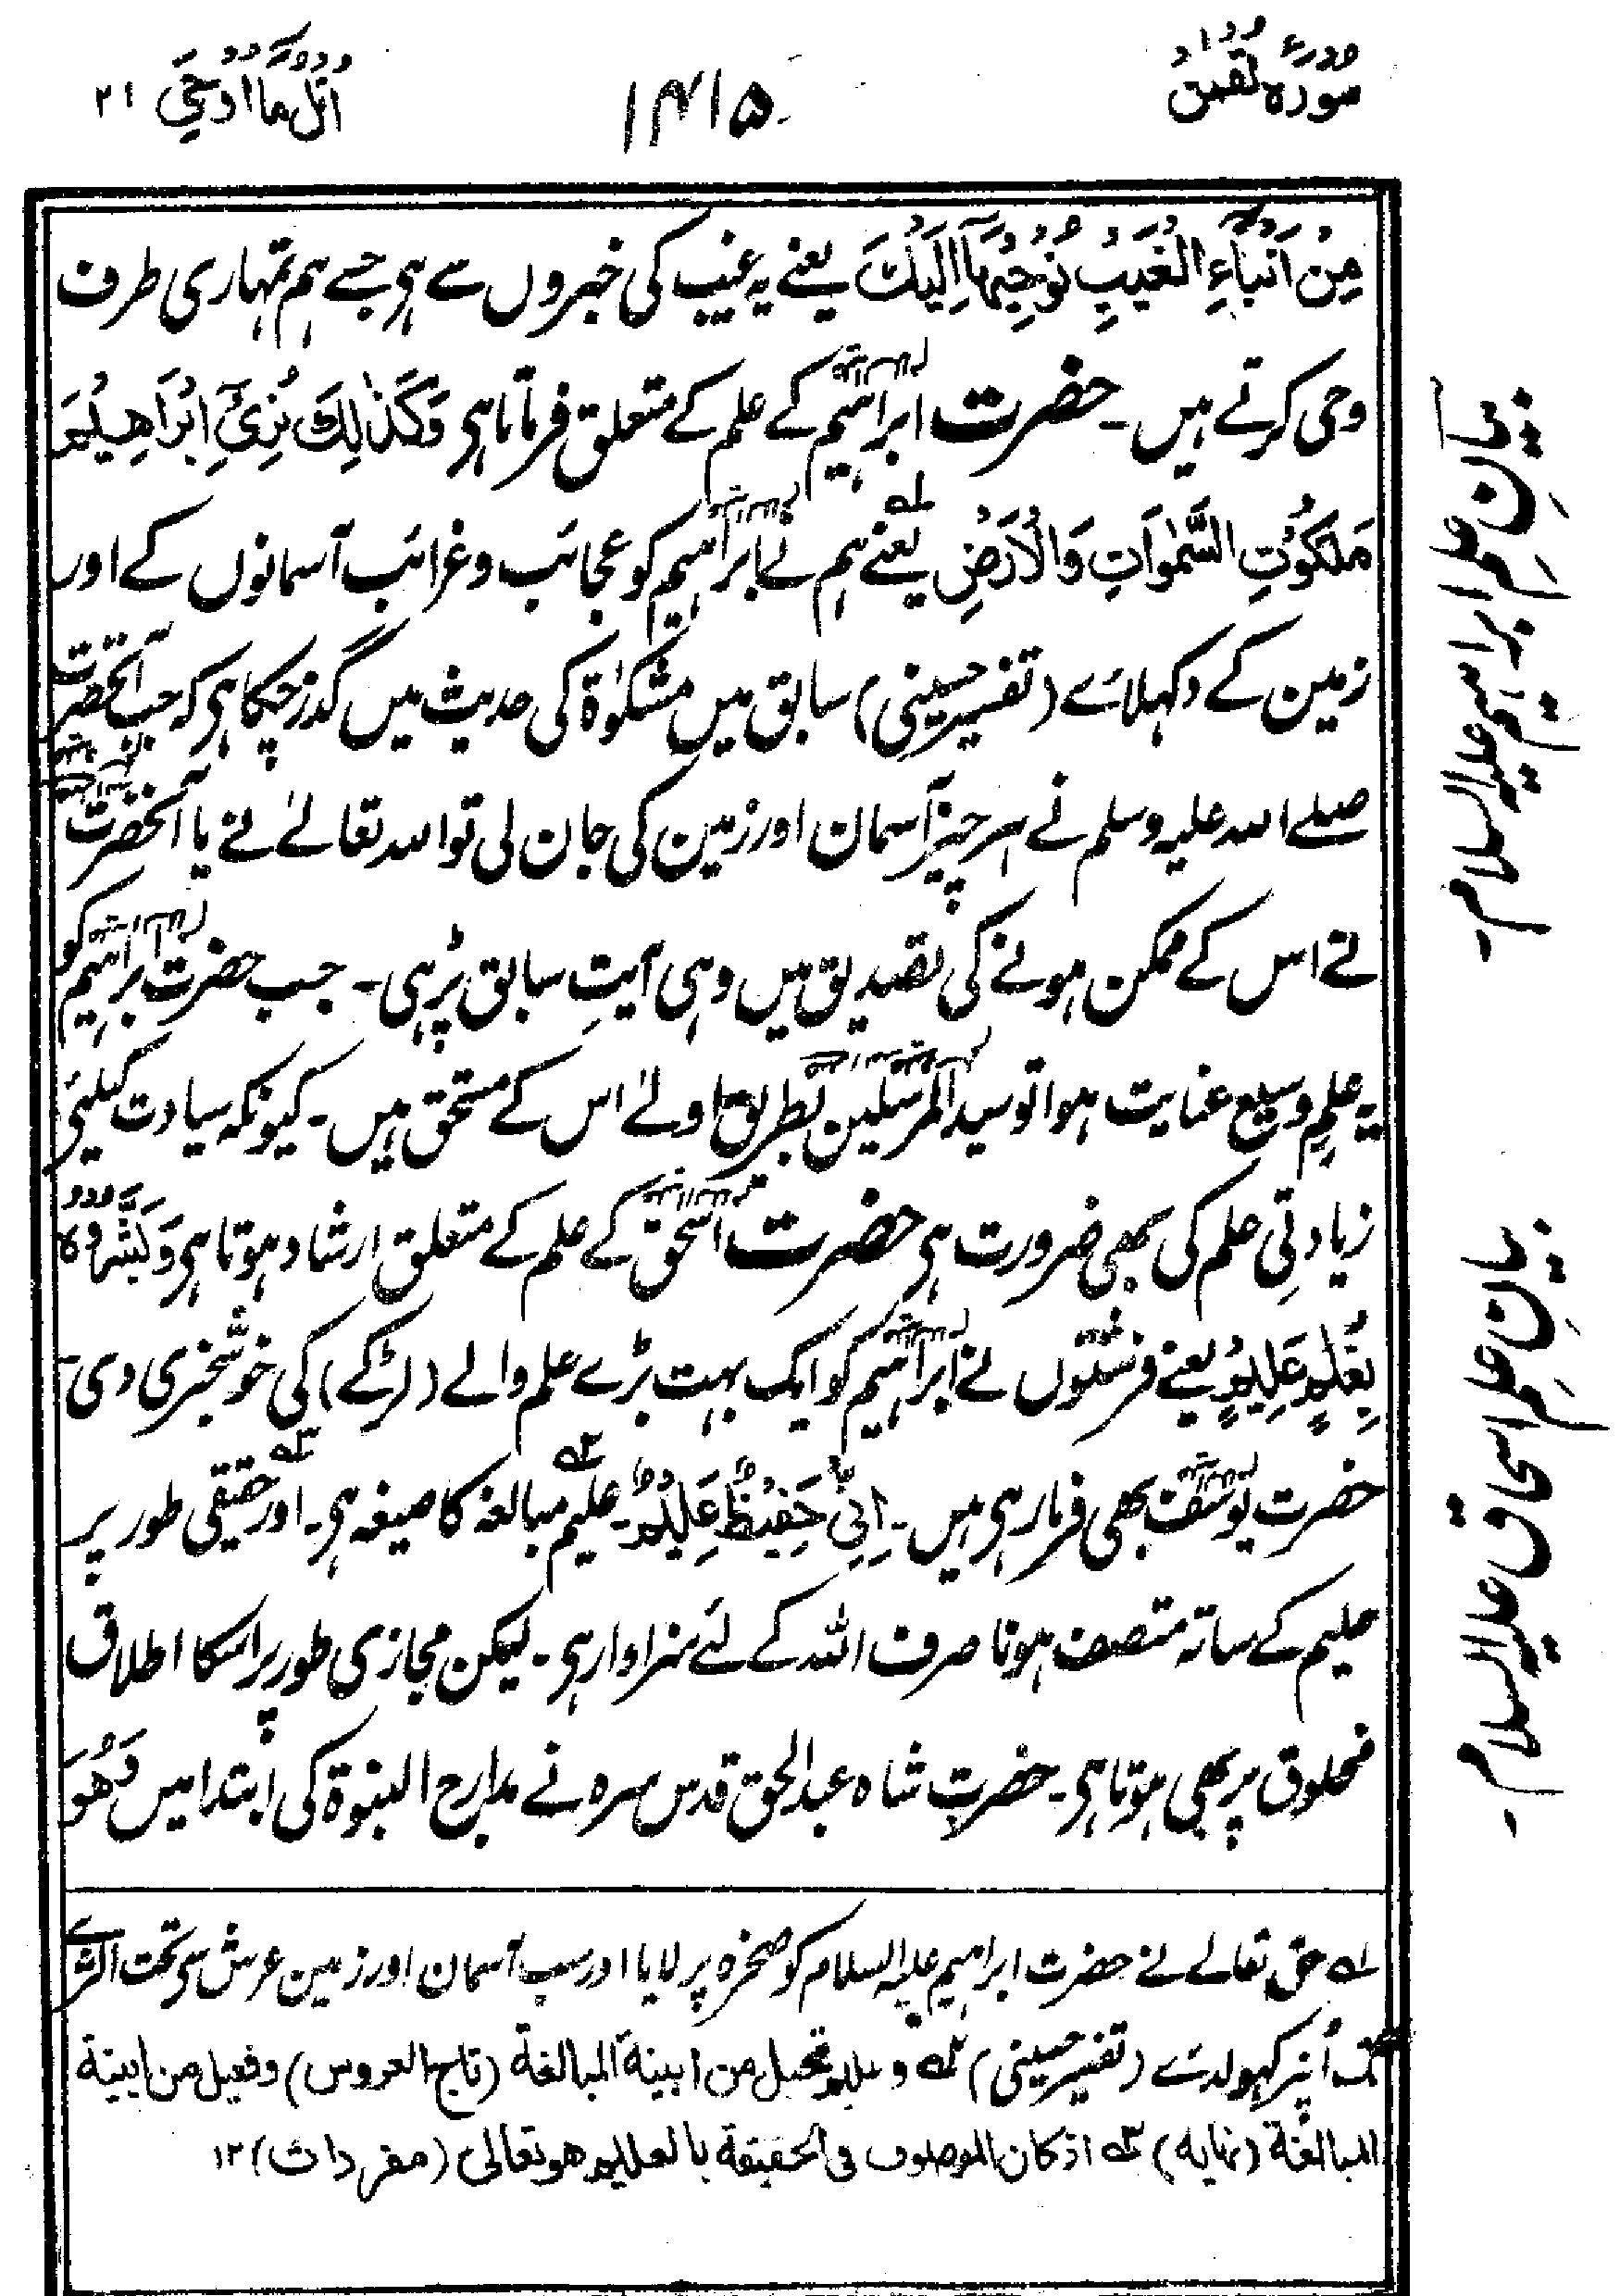 سورۃ لقمٰن
۱۴۱۵
اُتْلُ مَآ اُوْحِیَ ۲۱
مِنْ اَنْبَآءِ الْغَیْبِ نُوْحِیْهَآ اِلَیْكَ یعنے یہ غیب کی خبروں سے ہی جسے ہم تمہاری طرف
وحی کرتے ہیں۔ حضرت ابراہیم کے علم کے متعلق فرماتا ہی وَكَذٰلِكَ نُرِیْٓ اِبْرَاهِیْمَ
مَلَكُوْتَ السَّمٰوَاتِ وَالْاَرْضِ ۱ یعنے ہم نے ابراہیم کو عجائب وغرائب آسمانوں کے اور
زمین کے دکہلائے (تفسیر حسینی) سابق میں مشکوٰۃ کی حدیث میں گذر چکا ہی کہ جب آنحضرت
صلے اللہ علیہ وسلم نے ہر چیز آسمان اور زمین کی جان لی تو اللہ تعالےٰ نے یا آنحضرت
نے اس کے ممکن ہونے کی تصدیق میں وہی آیتِ سابق پڑہی۔ جب حضرت ابراہیم کو
یہ علمِ وسیع عنایت ہوا تو سید المرسلین بطریق اولےٰ اس کے مستحق ہیں۔ کیونکہ سیادت کیلئے
زیادتیِ علم کی بھی ضرورت ہی حضرت اسحٰق کے علم کے متعلق ارشاد ہوتا ہی وَبَشَّرُوْهُ
بِغُلٰمٍ عَلِیْمٍ یعنے فرشتوں نے ابراہیم کو ایک بہت بڑے علم والے (لڑکے) کی خوشخبری دی۔
حضرت یوسف بھی فرما رہی ہیں۔ اِنِّیْ حَفِیْظٌ عَلِیْمٌ۔ علیم ۲ مبالغہ کا صیغہ ہی۔ اور حقیقی ۳ طور پر
علیم کے ساتہ متصف ہونا صرف اللہ کے لئے سزاوار ہی۔ لیکن مجازی طور پر اسکا اطلاق
مخلوق پر بھی ہوتا ہی۔ حضرت شاہ عبدالحق قدس سرہ نے مدارج النبوۃ کی ابتدا میں وَهُوَ
۱ حق تعالےٰ نے حضرت ابراہیم علیہ السلام کو صخرہ پر لایا اور سب آسمان اور زمین عرش سی تحت الثرےٰ
تک اُنپر کہولدئے (تفسیر حسینی) ۲ و علیم فعیل من ابنیة المبالغة (تاج العروس) وفعیل من ابنیة
المبالغة (نہایہ) ۳ اذ كان الموصوف فی الحقیقة بالعلیم هو تعالى (مفردات) ۱۲
بیانِ علمِ ابراہیم علیہ السلام۔
بیانِ علمِ اسحاق علیہ السلام۔